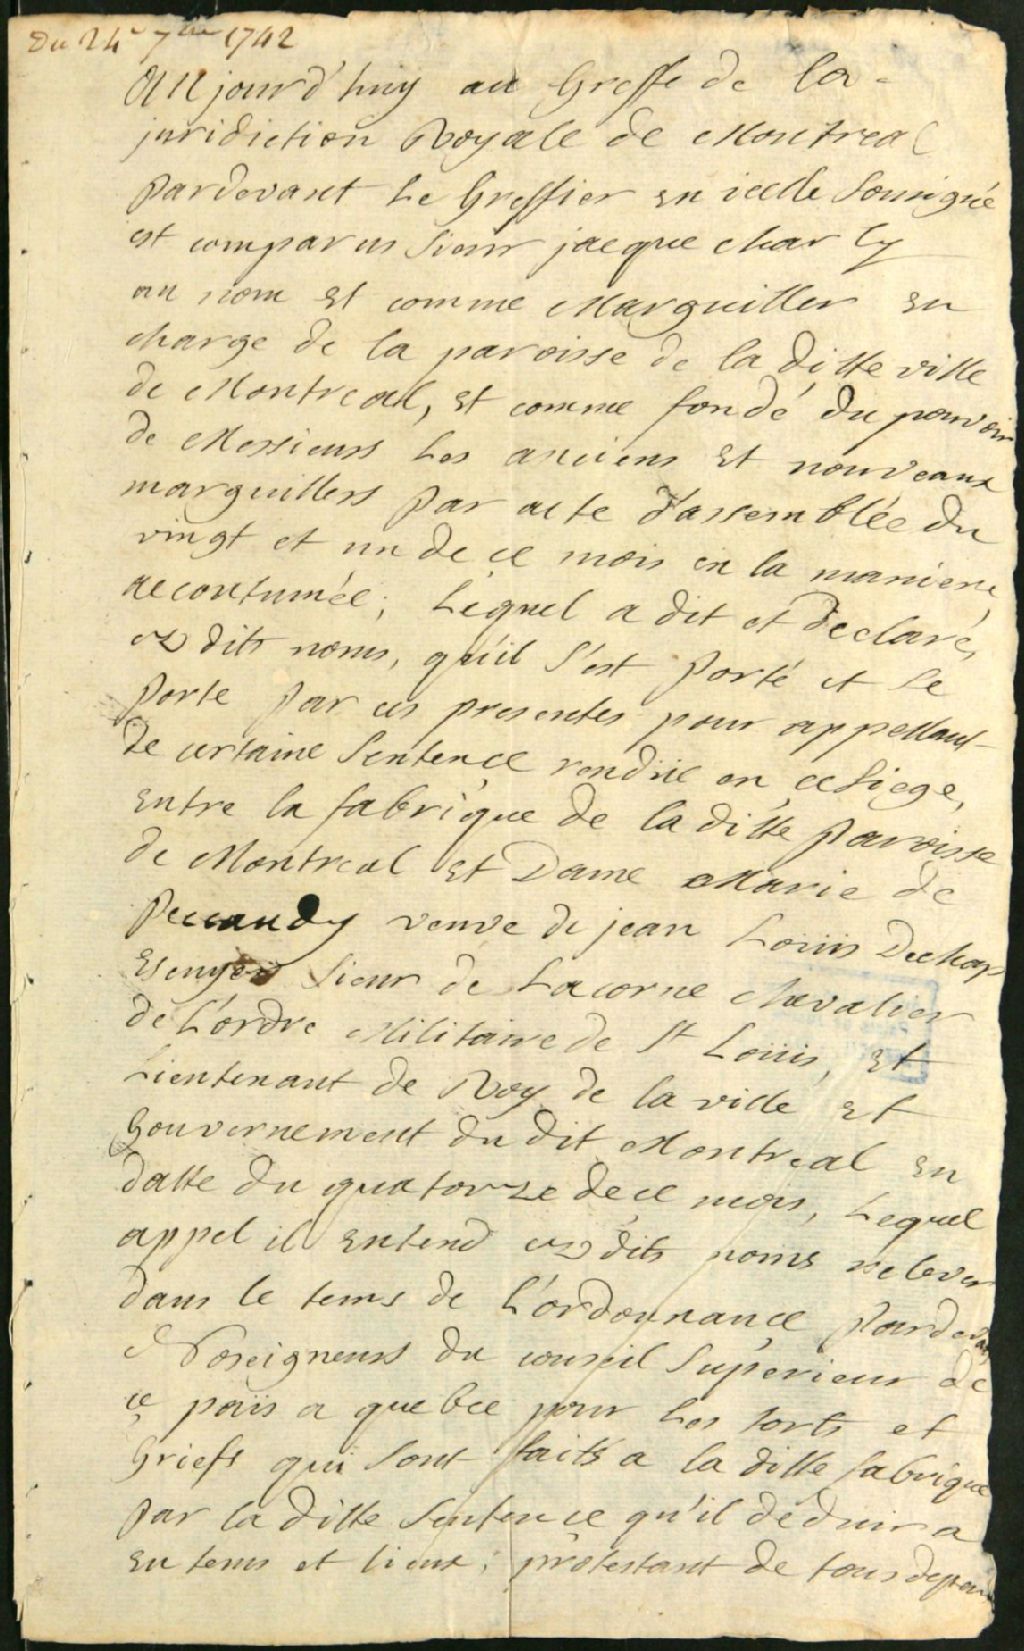 Du 24e 7bre 1742
Aujourd'huy au Greffe de la
juridiction Royale de Montreal
pardevant Le Greffier en icelle Sousigné
est comparus Sieur jacque charly
au nom Et comme Marguiller En
charge de la paroisse de la ditte ville
de Montreal, Et comme fondé du pouvoir
de Messieurs Les anciens Et nouveaux
marguillers par acte d'assemblée du
vingt et un de ce mois en la maniere
accoutumée; Lequel a dit et declaré,
ez dits noms, qu'il s'est porté et se
porte par ces presentes pour appellant
de certaine Sentence rendüe en ce Siege,
Entre la fabrique de la ditte paroisse
de Montreal Et Dame Marie de
Peccaudy veuve de jean Loüis Dechap
Ecuyer Sieur de Lacorne chevalier
de L'ordre Militaire de St Loüis, Et
Lieutenant de Roy de la ville Et
Gouvernement du dit Montreal En
datte du quatorze de ce mois, Lequel
appel il Entend ez dits noms relever
dans le tems de L'ordonnance pardevant
Noseigneurs du conseil Superieur de
ce païs a quebec pour Les torts et
Griefs qui Sont faits a la ditte fabrique
par la ditte Sentence qu'il déduira
En tems et lieux; protestant de tous depens